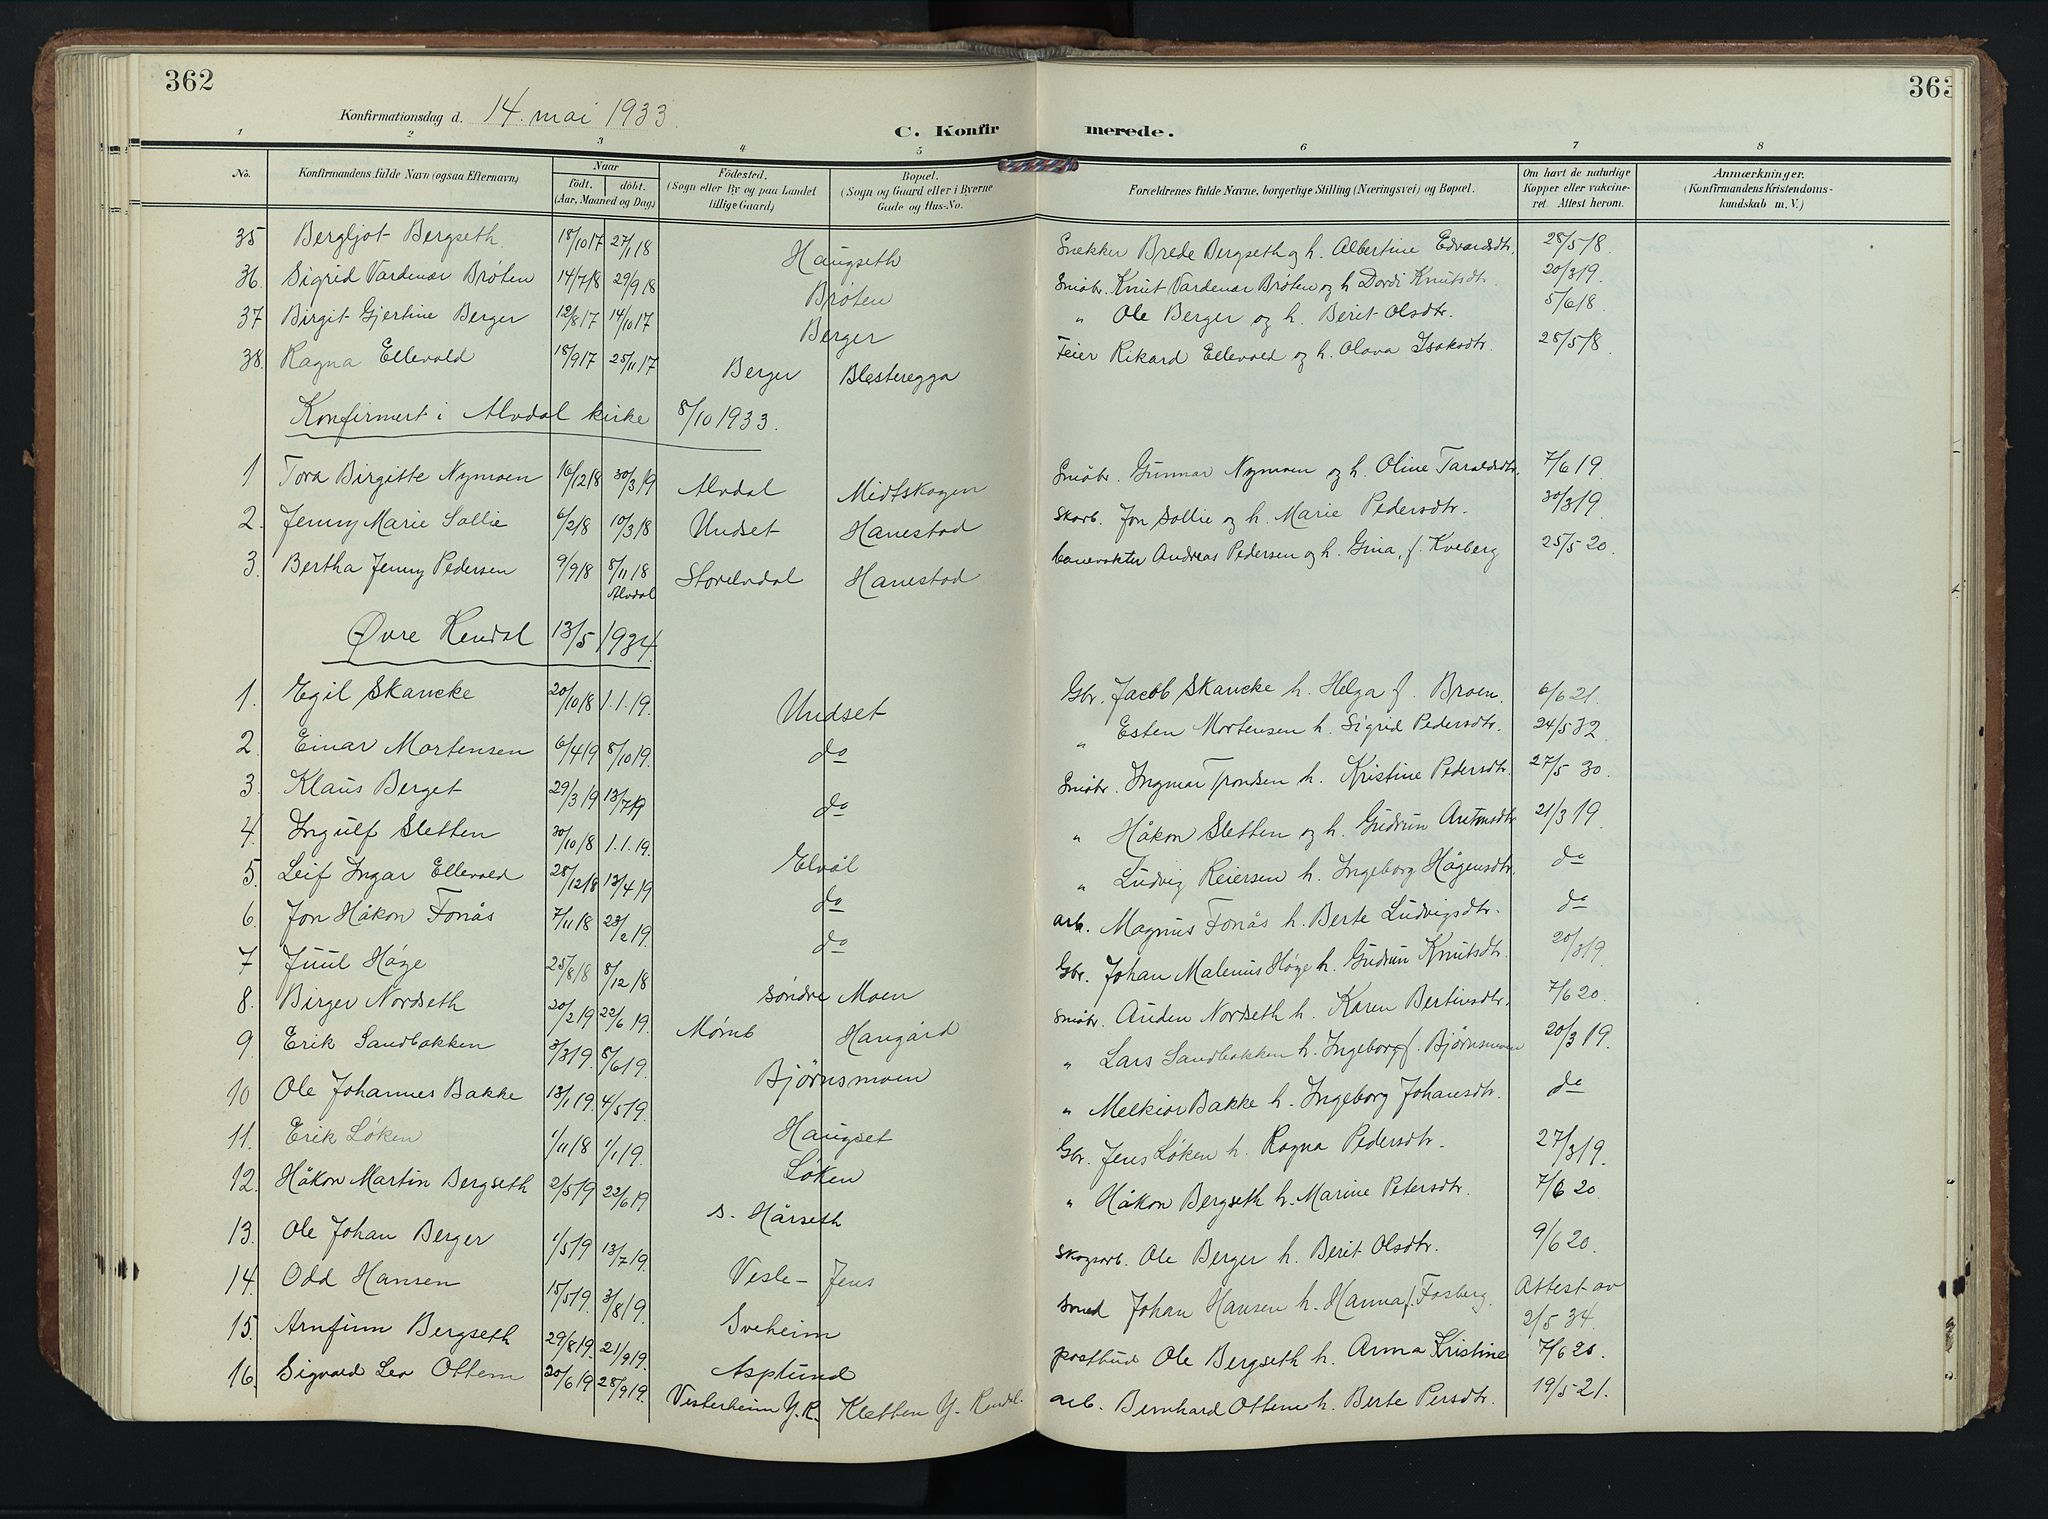 362
363
Konfirmationsdag d. 14. mai 1933.
C. Konfirmerede.
1 2 3 4 5 6 7 8
No. Konfirmandens fulde Navn (ogsaa Efternavn) Naar født. døbt. (Aar, Maaned og Dag) Fødested. (Sogn eller By og paa Landet tillige Gaard) Bopæl. (Sogn og Gaard eller i Byerne Gade og Hus-No. Forældrenes fulde Navne, borgerlige Stilling (Næringsvei) og Bopæl. Om havt de naturlige Kopper eller vakcineret. Attest herom. Anmærkninger. (Konfirmandens Kristendomskundskab m. V.)
35 Bergljot Bergseth 18/10 17 27/1 18 Haugseth Snekker Brede Bergseth og h. Albertine Edvardsdtr. 28/5 18.
36. Sigrid Vardenær Brøten 14/7 18 29/9 18 Brøten Småbr. Knut Vardenær Brøten og h Dordi Knutsdtr. 20/3 19.
37 Birgit Gjertine Berger 12/8 17 14/10 17 Berger " Ole Berger og h. Berit Olsdtr. 5/6 18
38. Ragna Ellevold 18/9 17 25/11 17 Berger Blesteregga Feier Rikard Ellevold og h. Olava Isaksdtr. 28/5 18.
Konfirmert i Alvdal kirke 8/10 1933.
1 Tora Birgitte Nymoen 16/12 18 30/3 19 Alvdal Midtskogen Småbr. Gunnar Nymoen og h. Oline Taraldsdtr. 7/6 19
2. Jenny Marie Sollie 6/2 18 10/3 18 Undset Hanestad Skarb. Jon Sollie og h. Marie Pedersdtr. 30/3 19
3. Bertha Jenny Pedersen 9/9 18 8/11 18 Alvdal Storelvdal Hanestad banevokter Andreas Pedersen og h. Gina, f. Kveberg 25/5 20.
Øvre Rendal 13/5 1934.
1. Egil Skancke 20/10 18 1.1.19. Undset Gbr. Jacob Skancke h. Helga f. Broen. 6/6 21.
2. Einar Mortensen 6/4 19 8/10 19. do " Esten Mortensen h. Sigrid Pedersdtr. 24/5 32
3. Klaus Berget 29/3 19 13/7 19 do Småbr. Ingmar Trondsen h. Kristine Pedersdtr. 27/5 30.
4. Ingulf Sletten 30/10 18 1.1.19. Elvål " Håkon Sletten og h. Gudrun Antonsdtr. 21/3 19.
5. Leif Ingar Ellevold 28/12 18 13/4 19 do " Ludvig Reiersen h. Ingeborg Hågensdtr. do
6. Jon Håkon Fonås 7/11 18 23/2 19. do arb. Magnus Fonås h. Berte Ludvigsdtr. do
7 Juul Høge 25/8 18 8/12 18 Søndre Moen Gbr. Johan Malenius Høge h. Gudrun Knutsdtr. 20/3 19.
8. Birger Nordseth 20/2 19 22/6 19. Mømb Haugård Småbr. Auden Nordseth h. Karen Bertinsdtr. 7/6 20.
9 Erik Sandbakken 3/3 19. 8/6 19. Bjørnsmoen " Lars Sandbakken h. Ingeborg f. Bjørnsmoen 20/3 19.
10 Ole Johannes Bakke 13/1 19. 4/5 19. Haugset " Melkior Bakke h. Ingeborg Johansdtr. do
11. Erik Løken 1/11 18 1/1 19. Løken Gbr. Jens Løken h. Ragna Pedersdtr. 27/3 19.
12. Håkon Martin Bergseth 2/5 19 22/6 19 S. Hårseth " Håkon Bergseth h. Marine Petersdtr. 7/6 20.
13. Ole Johan Berger 1/5 19 13/7 19. Vesle-Jens Skogsarb. Ole Berger h. Berit Olsdtr. 9/6 20.
14. Odd Hansen 15/5 19. 3/8 19. Sveheim Smed Johan Hansen h. Hanna f. Fosberg. Attest av 2/5 34.
15. Arnfinn Bergseth 29/8 19. 21/9 19. Asplund postbud Ole Bergseth h. Anna Kristine 7/6 20.
16. Sigvard Leo Ottem 20/6 19 28/9 19. Vesterheim Y. R. Kletten Y. Rendal. arb. Bernhard Ottem h. Berte Persdtr. 19/5 21.